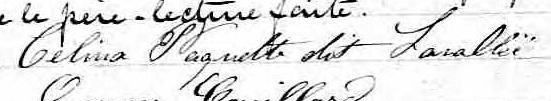 le père - lecture faite.
Célina Paquette dit Lavallée
Couillard